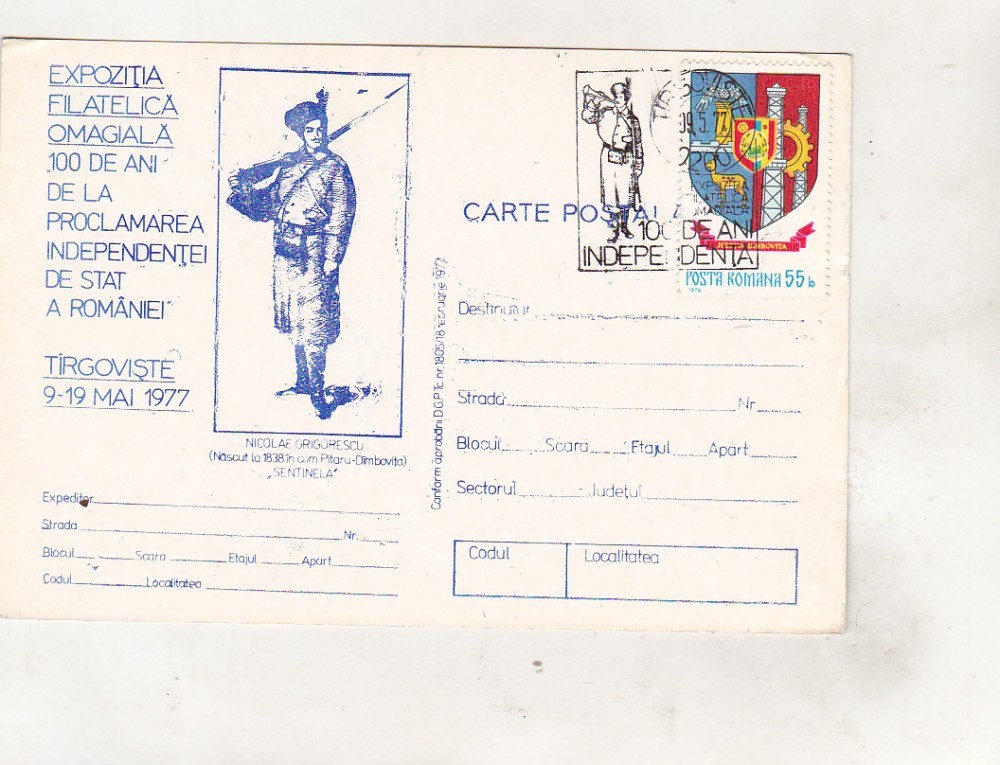 EXPOZIȚIA
FILATELICĂ
OMAGIALĂ
100 DE ANI
DE LA
PROCLAMAREA
INDEPENDENȚEI
DE STAT
A ROMÂNIEI
TÎRGOVIȘTE
9-19 MAI 1977
NICOLAE GRIGORESCU
(Născut la 1838 în com Pitaru-Dîmbovița)
„SENTINELA"
Expeditor
Strada Nr.
Blocul Scara Etajul Apart
Codul Localitatea
Conform aprobării D.G.P.Tc nr. 1805/18 februarie 1977
CARTE POȘTALĂ
TÎRGOVIȘTE
09.5.77
0200
EXPOZIȚIA
FILATELICĂ
OMAGIALĂ
100 DE ANI
INDEPENDENȚA
JUDEȚUL DÎMBOVIȚA
POSTA ROMANA 55 b
1976
Destinatar
Strada Nr
Blocul Scara Etajul Apart
Sectorul Județul
Codul Localitatea